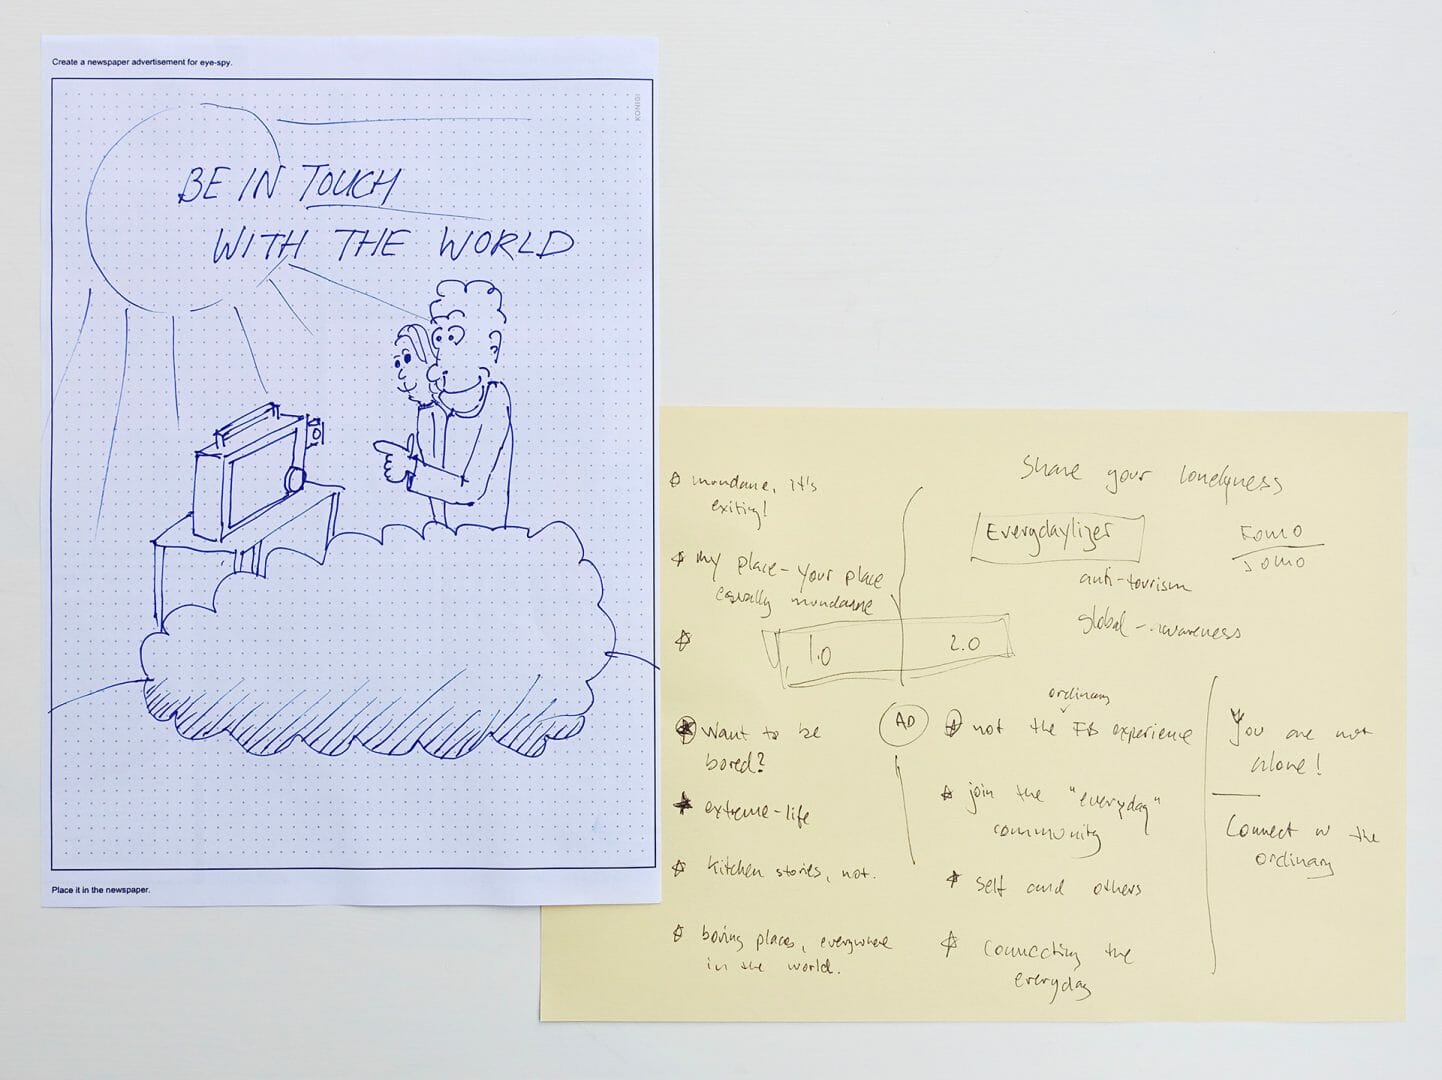 Create a newspaper advertisement for eye-spy.
KONIGI
BE IN TOUCH
WITH THE WORLD
Place it in the newspaper.
mundane, it's
exiting!
my place - your place
equally mundane
1.0
2.0
Want to be
bored?
extreme-life
kitchen stories, not.
boring places, everywhere
in the world.
AD
Share your lonelyness
Everydaylizer
FOMO
JOMO
anti-tourism
global-awareness
ordinary
not the FB experience
join the "everyday"
community
self and others
connecting the
everyday
You are not
alone!
Connect w the
ordinary